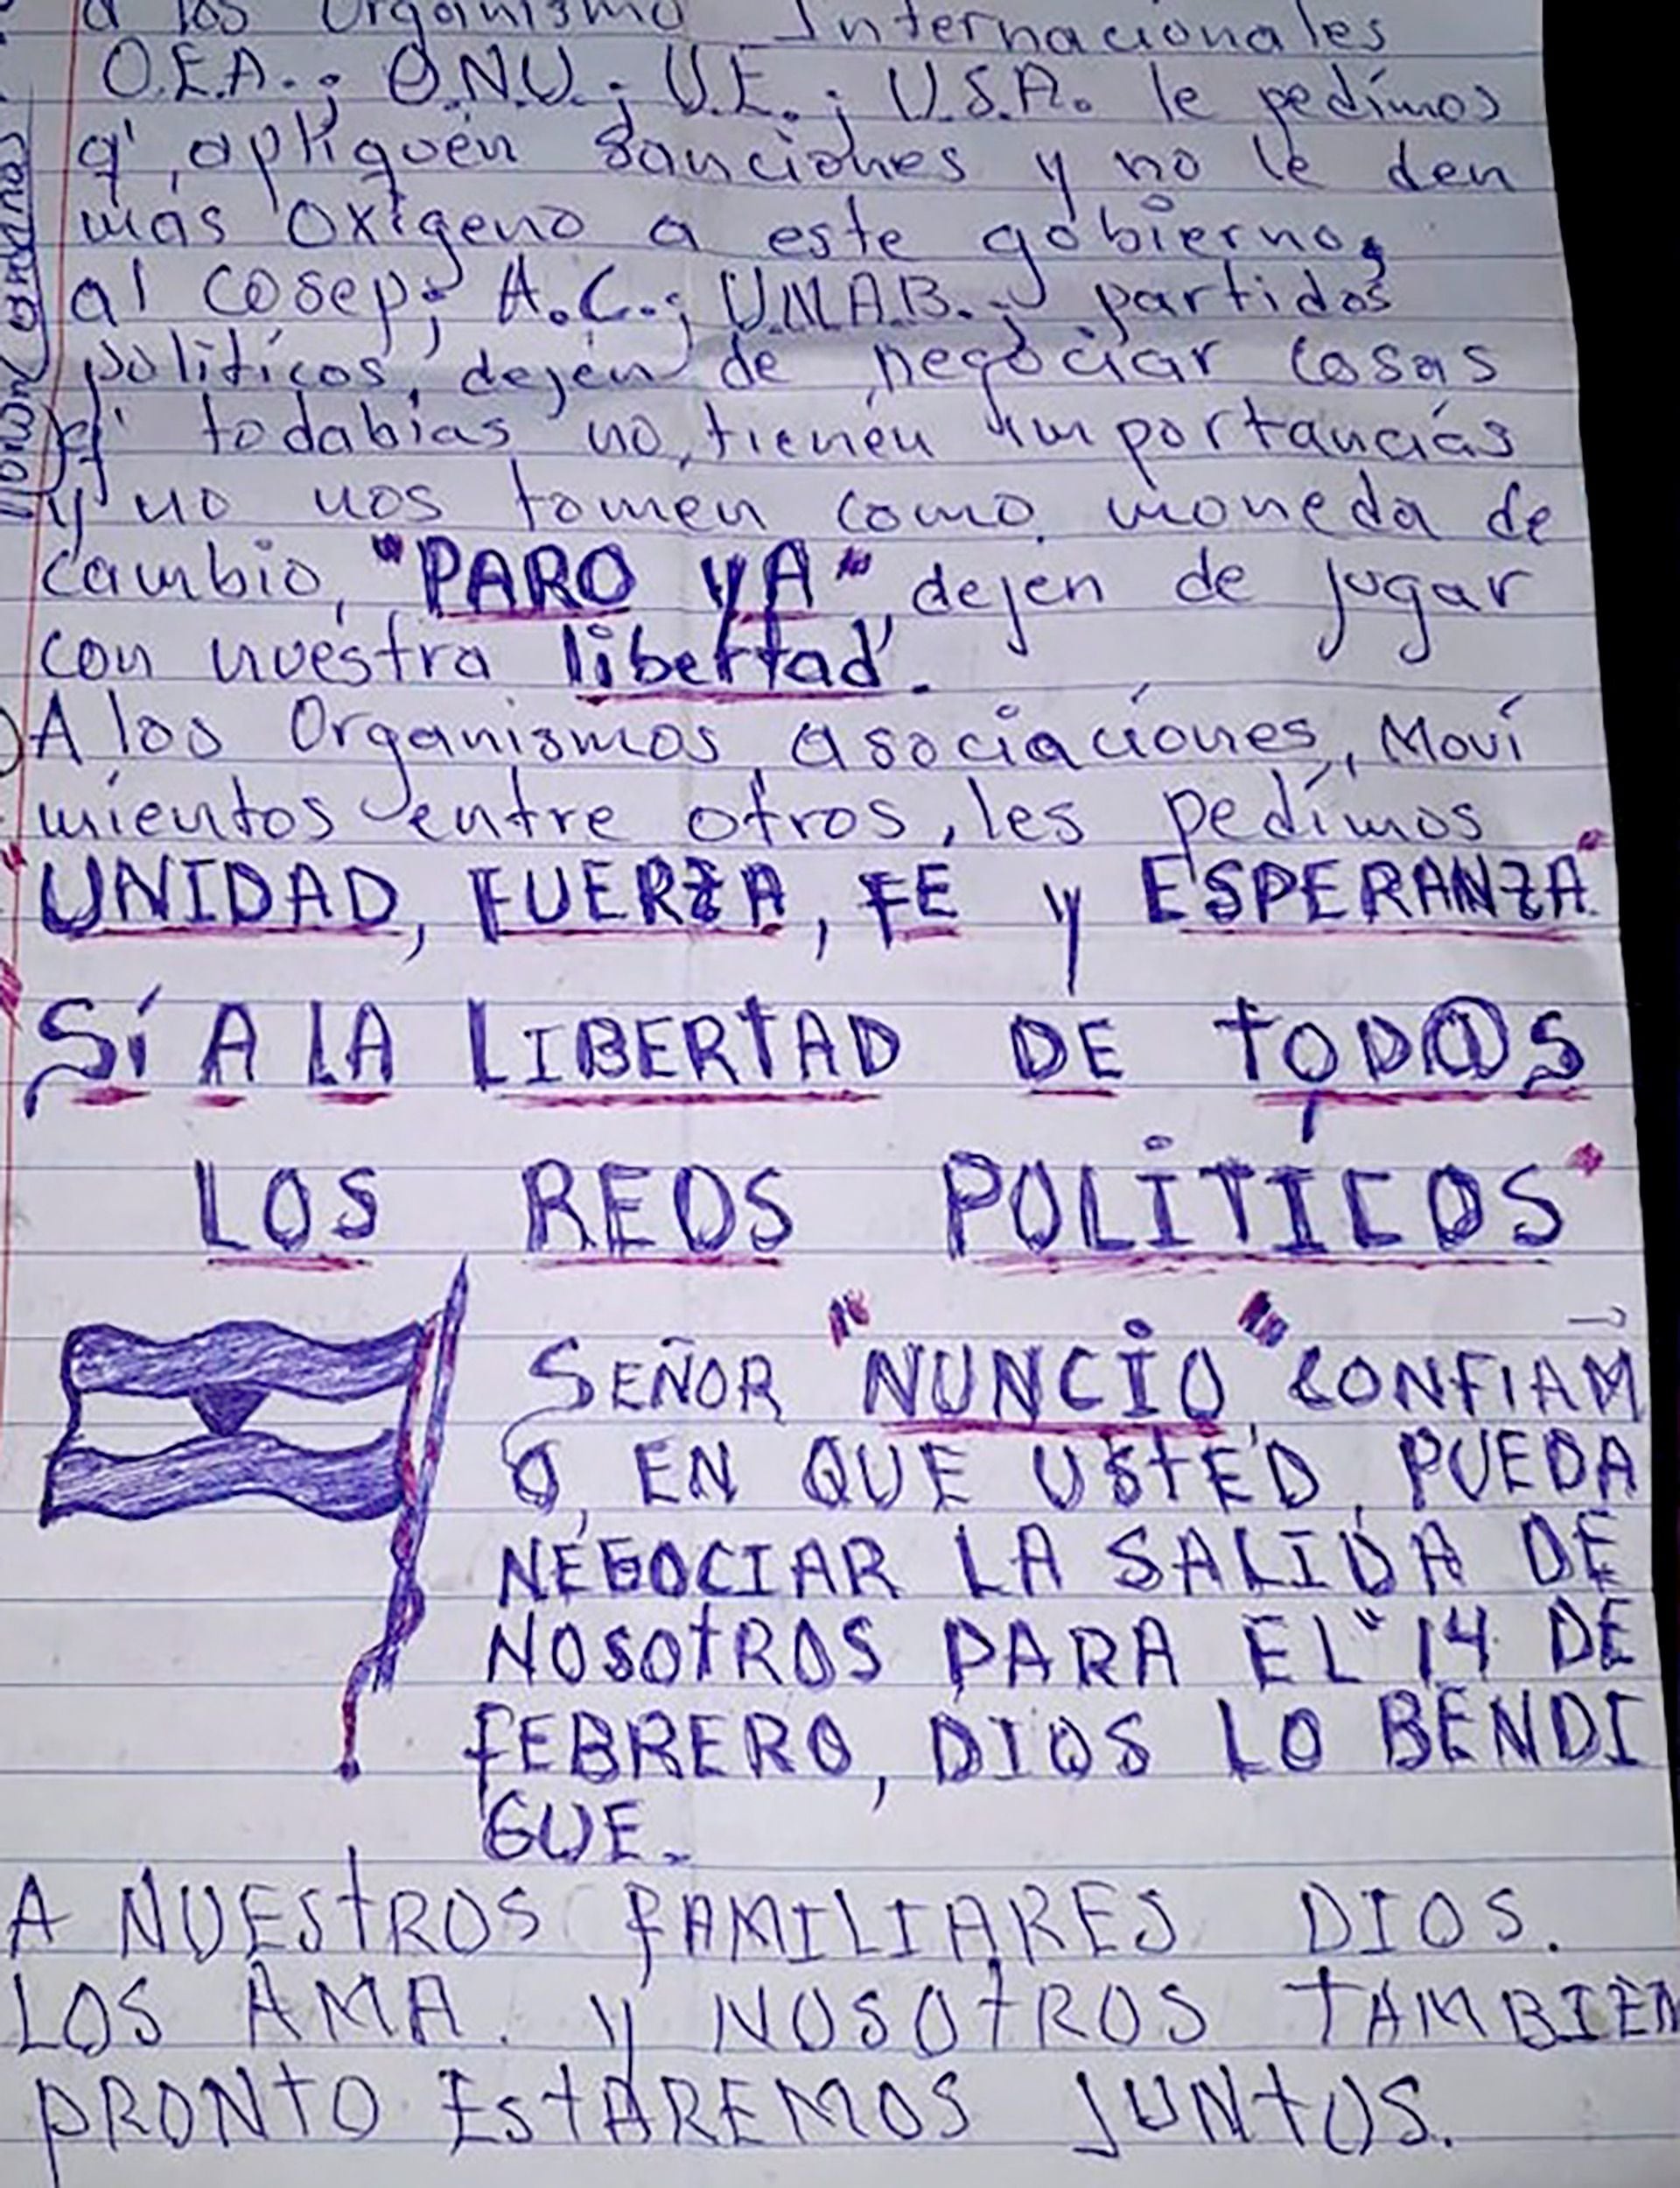 a los Organismo Internacionales
O.E.A.; O.N.U.; U.E.; U.S.A. le pedímos
q' apliquén sanciones y no le den
más oxígeno a este gobierno,
al cosep; A.C.; U.N.A.B.; partidos
políticos, dején de negociar cosas
q' todabías no, tienén importancías
y no nos tomen como moneda de
cambio, "PARO YA" dejen de jugar
con nuestra libertad.
A los Organismos, asociacíones, Moví
mientos entre otros, les pedímos
"UNIDAD, FUERZA, FE y ESPERANZA"
"SÍ A LA LIBERTAD DE TOD@S
LOS REOS POLÍTÍCOS"
SEÑOR "NUNCIO" CONFIAM
O, EN QUE USTED, PUEDA
NEGOCIAR LA SALIDA DE
NOSOTROS PARA EL "14 DE
FEBRERO, DIOS LO BENDI
GUE.
A NUESTROS FAMILIARES DIOS.
LOS AMA. y NOSOTROS TAMBIEN
PRONTO ESTAREMOS JUNTOS.